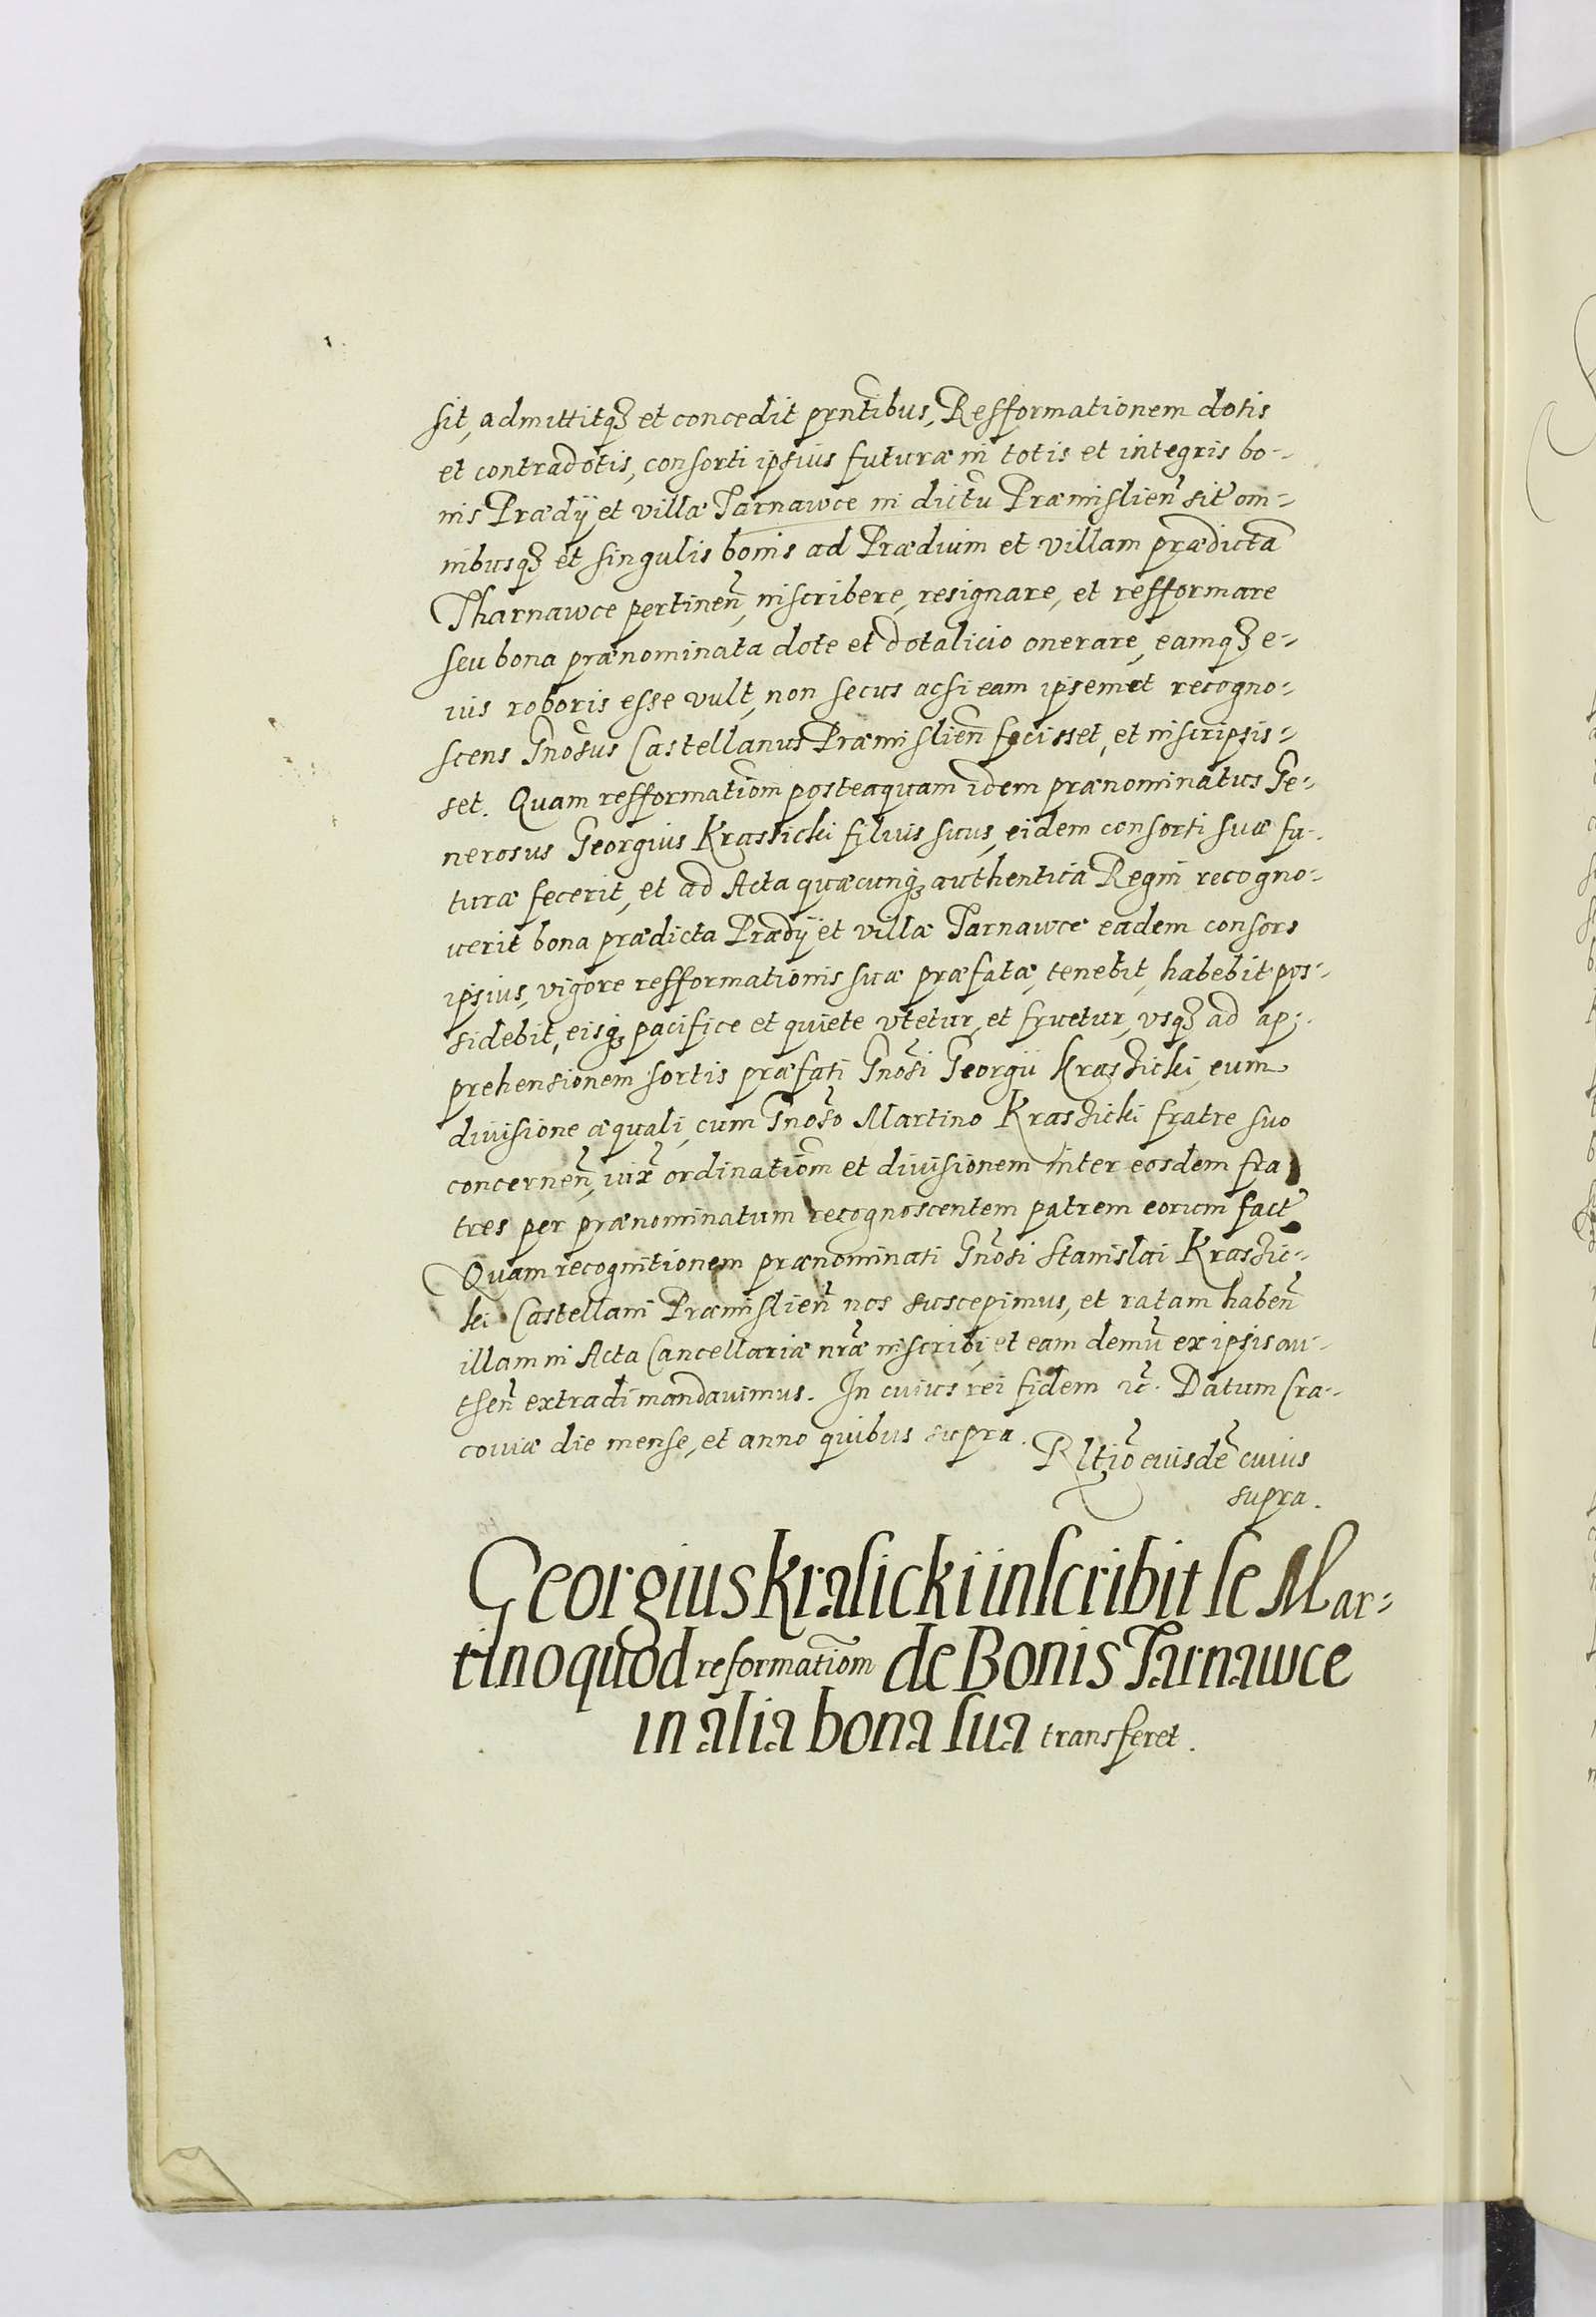 sit, admittitqȝ et concedit pŗntibus, Refformationem dotis
et contradotis, consorti ipsius futuræ in totis et integris bo-
nis Prædij et villæ Tarnawce in dictu Præmislien̄ sit om-
nibusqȝ et singulis bonis ad Prædium et villam prædictā
Tharnawce pertinen̄, inscribere, resignare, et refformare
seu bona prænominata dote et dotalicio onerare, eamqȝ e-
ius roboris esse vult, non secus acsi eam ipsemet recogno-
scens Gnōsus Castellanus Præmislien̄ fecisset, et inscripsis-
set. Quam refformatiōm posteaquam idem prænominatus Ge-
nerosus Georgius Krassicki fylius suus, eidem consorti suæ fu-
turæ fecerit, et ad Acta quæcunqȝ authentica Regni recogno-
uerit bona prædicta Prædij et villæ Tarnawce eadem consors
ipsius, vigore refformationis suæ præfatæ, tenebit, habebit pos-
sidebit, eisqȝ pacifice et quiete vtetur, et fruetur, vsqȝ ad ap-
prehensionem sortis præfati Gnōsi Georgii Krassicki, eum
diuisione æquali, cum Gnōso Martino Krassicki fratre suo
concernen̄, iux̄ ordinatiōm et diuisionem inter eosdem fra
tres per prænominatum recognoscentem patrem eorum fact̄
Quam recognitionem prænominati Gnōsi Stanislai Krassic-
ki Castellani Præmislien̄ nos suscepimus, et ratam haben̄
illam in Acta Cancellariæ nrǣ inscribi, et eam demū ex ipsis au-
then̄ extradi mandauimus. In cuius rei fidem ⁊c̄. Datum Cra-
couiæ die mense, et anno quibus supra.
Rltiō eiusdē cuius
supra.
Georgius Krasicki inscribit se Mar-
tino quod reformatiōm de Bonis Tarnawce
in alia bona sua transferet.